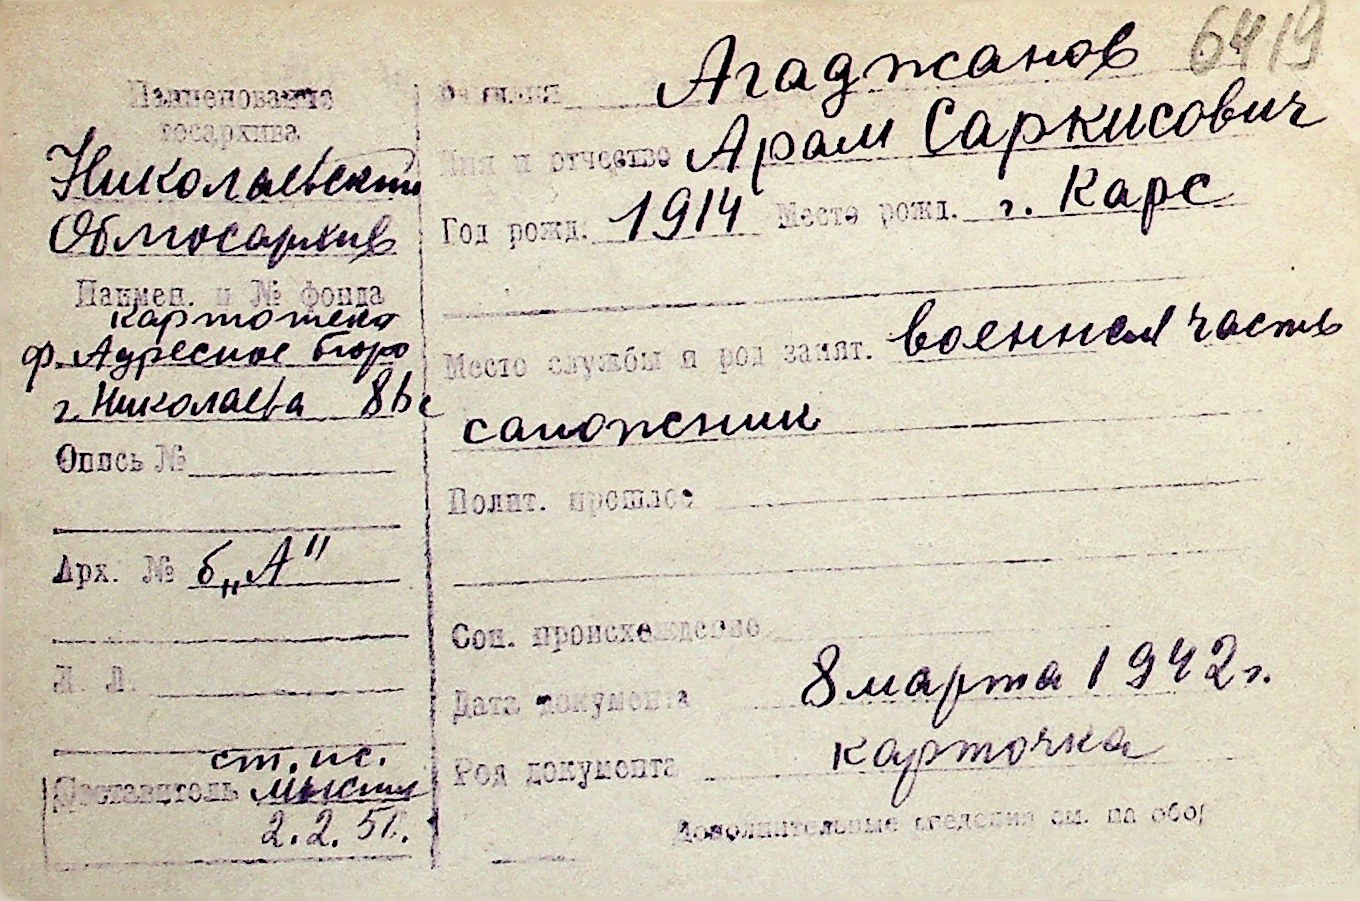 6419
Наименование
госархива
Николаевский
Облгосархив
Наимен. и № фонда
картотека
ф. Адресное бюро
г. Николаева
Опись №
Арх. № б „А"
Л. Л.
ст. ис.
Составитель
2.2.51.
Фамилия Агаджанов
Имя и отчество Арам Саркисович
Год рожд. 1914 Место рожд. г. Карс
Место службы и род занят. военная часть
сапожник
Полит. прошлое
Соц. происхождение
Дата документа 8 марта 1942 г.
Род документа карточка
Дополнительные сведения см. на обор